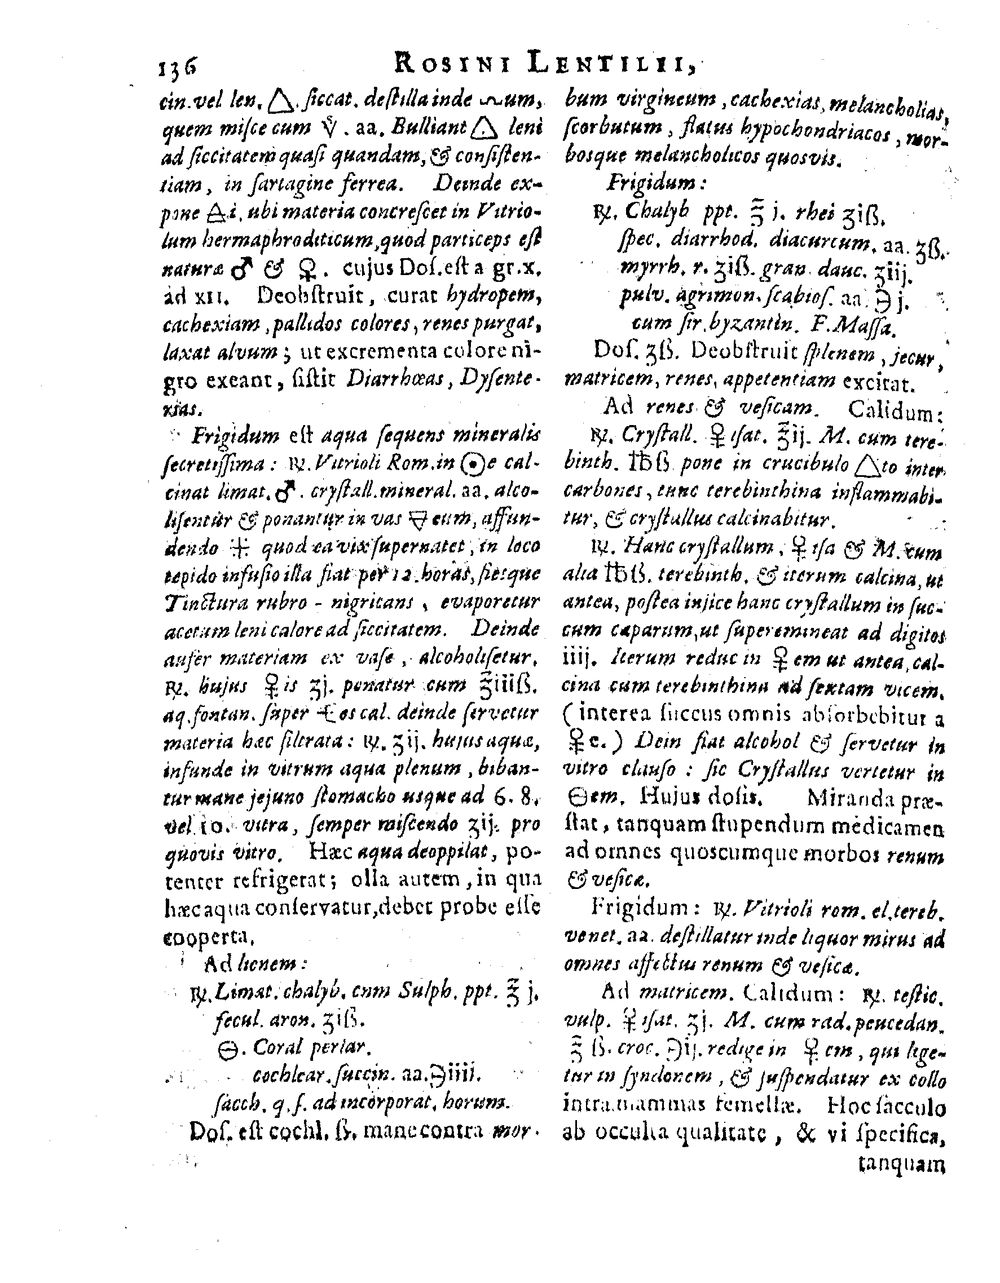 136 ROSINI LENTILII,
cin. vel len. 🜂. ſiccat. deſtilla inde 🝞um,
quem miſce cum . aa. Bulliant 🜂 leni
ad ſiccitatem quaſi quandam, & conſiſten-
tiam, in ſartagine ferrea. Deinde ex-
pone 🜁i, ubi materia concreſcet in Vitrio-
lum hermaphroditicum, quod particeps eſt
naturæ ♂ & ♀. cujus Doſ. eſt a gr. x.
ad XII. Deobſtruit, curat hydropem,
cachexiam, pallidos colores, renes purgat,
laxat alvum; ut excrementa colore ni-
gro exeant, ſiſtit Diarrhœas, Dyſente-
rias.
Frigidum eſt aqua ſequens mineralis
ſecretiſſima: ℞. Vitrioli Rom. in ☉e cal-
cinat limat. ♂. cryſtall. mineral. aa. alco-
liſentur & ponantur in vas 🜃eum, affun-
dendo 🜊 quod ea vix ſupernatet, in loco
tepido infuſio illa fiat per 12. horas, fietque
Tinctura rubro-nigricans, evaporetur
acetum leni calore ad ſiccitatem. Deinde
aufer materiam ex vaſe, alcoholiſetur.
℞. hujus ♀is ʒj. ponatur cum ℥iiiß.
aq. fontan. ſuper os cal. deinde ſervetur
materia hæc filtrata: ℞. ʒij. hujus aquæ,
infunde in vitrum aqua plenum, biban-
tur mane jejuno ſtomacho usque ad 6. 8.
vel 10. vitra, ſemper miſcendo ʒij. pro
quovis vitro. Hæc aqua deoppilat, po-
tenter refrigerat; olla autem, in qua
hæc aqua conſervatur, debet probe eſſe
cooperta.
Ad lienem:
℞. Limat. chalyb. cum Sulph. ppt. ℥ j.
fecul. aron. ʒiß.
🜔. Coral perlar.
cochlear. ſuccin. aa. ℈iiii.
ſacch. q. ſ. ad incorporat. horum.
Doſ. eſt cochl. ß. mane contra mor-
bum virgineum, cachexias, melancholias,
ſcorbutum, flatus hypochondriacos, mor-
bosque melancholicos quosvis.
Frigidum:
℞. Chalyb ppt. ℥ j. rhei ʒiß.
ſpec. diarrhod. diacurcum. aa. ʒß.
myrrh. r. ʒiß. gran. dauc. ʒiij.
pulv. agrimon. ſcabioſ. aa. ℈j.
cum ſir. byzantin. F. Maſſa.
Doſ. ʒß. Deobſtruit ſplenem, jecur,
matricem, renes, appetentiam excitat.
Ad renes & veſicam. Calidum:
℞. Cryſtall. ♀iſat. ℥ij. M. cum tere-
binth. ℔ß pone in crucibulo 🜂to inter
carbones, tunc terebinthina inflammabi-
tur, & cryſtallus calcinabitur.
℞. Hanc cryſtallum, ♀iſa & M. cum
alia ℔ß. terebinth. & iterum calcina, ut
antea, poſtea injice hanc cryſtallum in ſuc-
cum caparum, ut ſuperemineat ad digitos
iiij. Iterum reduc in ♀em ut antea, cal-
cina cum terebinthina ad ſextam vicem.
(interea ſuccus omnis abſorbebitur a
♀e.) Dein fiat alcohol & ſervetur in
vitro clauſo: ſic Cryſtallus vertetur in
🜔em. Hujus doſis. Miranda præ-
ſtat, tanquam ſtupendum medicamen
ad omnes quoscumque morbos renum
& veſicæ.
Frigidum: ℞. Vitrioli rom. el. tereb.
venet. aa. deſtillatur inde liquor mirus ad
omnes affectus renum & veſicæ.
Ad matricem. Calidum: ℞. teſtic.
vulp. ♀iſat. ʒj. M. cum rad. peucedan.
℥ ß. croc. ℈ij. redige in ♀em, qui lige-
tur in ſyndonem, & ſuſpendatur ex collo
intra mammas femellæ. Hoc ſacculo
ab occulta qualitate, & vi ſpecifica,
tanquam